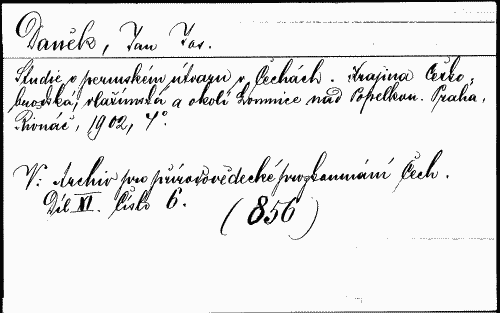 Daněk, Jan Jos.
Studie o permském útvaru v Čechách. Krajina Česko-
brodská, vlašimská a okolí Lomnice nad Popelkou. Praha,
Řivnáč, 1902, 4°.
V: Archiv pro přírodovědecké proskoumání Čech.
Díl XI. číslo 6.
(856)